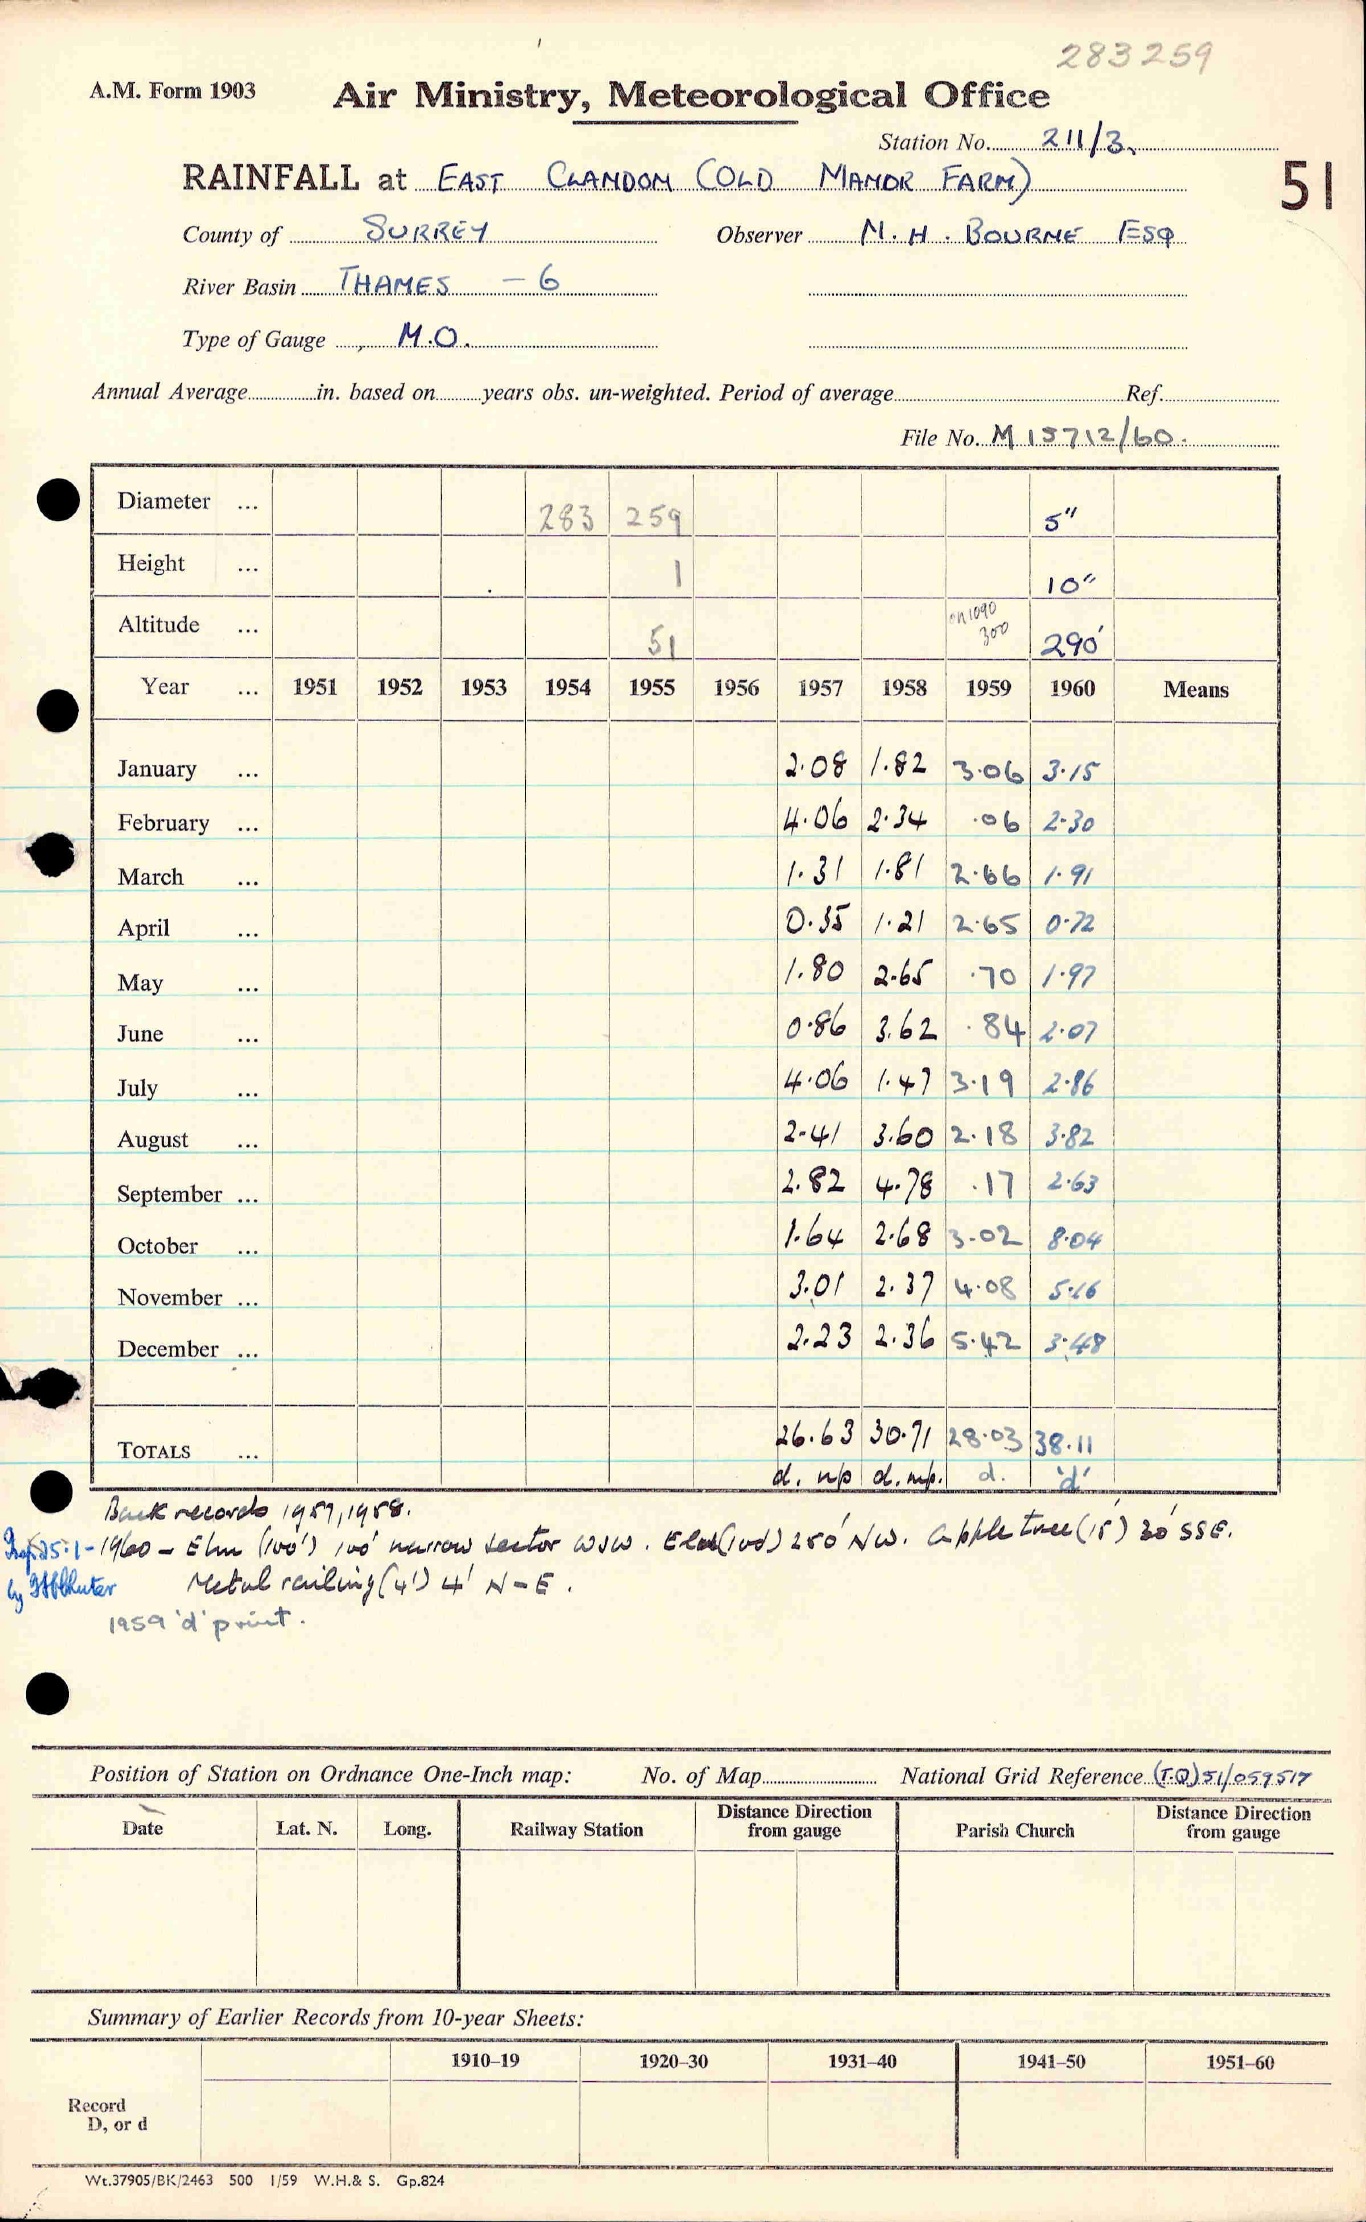 283259
A.M. Form 1903 Air Ministry, Meteorological Office
Station No. 211/3.
RAINFALL at EAST CLANDON (OLD MANOR FARM) 51
County of SURREY Observer M. H. BOURNE ESQ
River Basin THAMES - 6
Type of Gauge M.O.
Annual Average in. based on years obs. un-weighted. Period of average Ref.
File No. M 15712/60.
Diameter ... 283 259 5"
Height ... 1 10"
Altitude ... 51 on 1090 300 290'
Year ... 1951 1952 1953 1954 1955 1956 1957 1958 1959 1960 Means
January ... 2.08 1.82 3.06 3.15
February ... 4.06 2.34 .06 2.30
March ... 1.31 1.81 2.66 1.91
April ... 0.35 1.21 2.65 0.72
May ... 1.80 2.65 .70 1.97
June ... 0.86 3.62 .84 2.07
July ... 4.06 1.47 3.19 2.86
August ... 2.41 3.60 2.18 3.82
September ... 2.82 4.78 .17 2.63
October ... 1.64 2.68 3.02 8.04
November ... 3.01 2.37 4.08 5.16
December ... 2.23 2.36 5.42 3.48
TOTALS ... 26.63 30.71 28.03 38.11
d. np d. np. d. 'd'
Back records 1957, 1958.
25.1-1960 - Elm (100') 100' narrow sector WSW. Elm (100) 250' NW. Apple tree (15') 30' SSE.
by Metal railing (4') 4' N-E.
1959 'd' print.
Position of Station on Ordnance One-Inch map: No. of Map National Grid Reference (T.Q) 51/059517
Date Lat. N. Long. Railway Station Distance Direction from gauge Parish Church Distance Direction from gauge
Summary of Earlier Records from 10-year Sheets:
1910–19 1920–30 1931–40 1941–50 1951–60
Record
D, or d
Wt.37905/BK/2463 500 1/59 W.H.& S. Gp.824